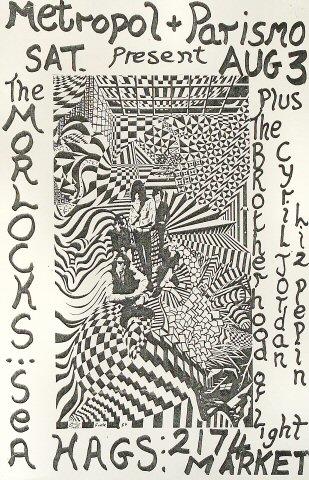 Metropol + Parismo
SAT. Present AUG 3
The MORLOCKS... SeA HAGS:
Plus
The Brotherhood of Light
Cyril Jordan
Liz pepin
2174 MARKET